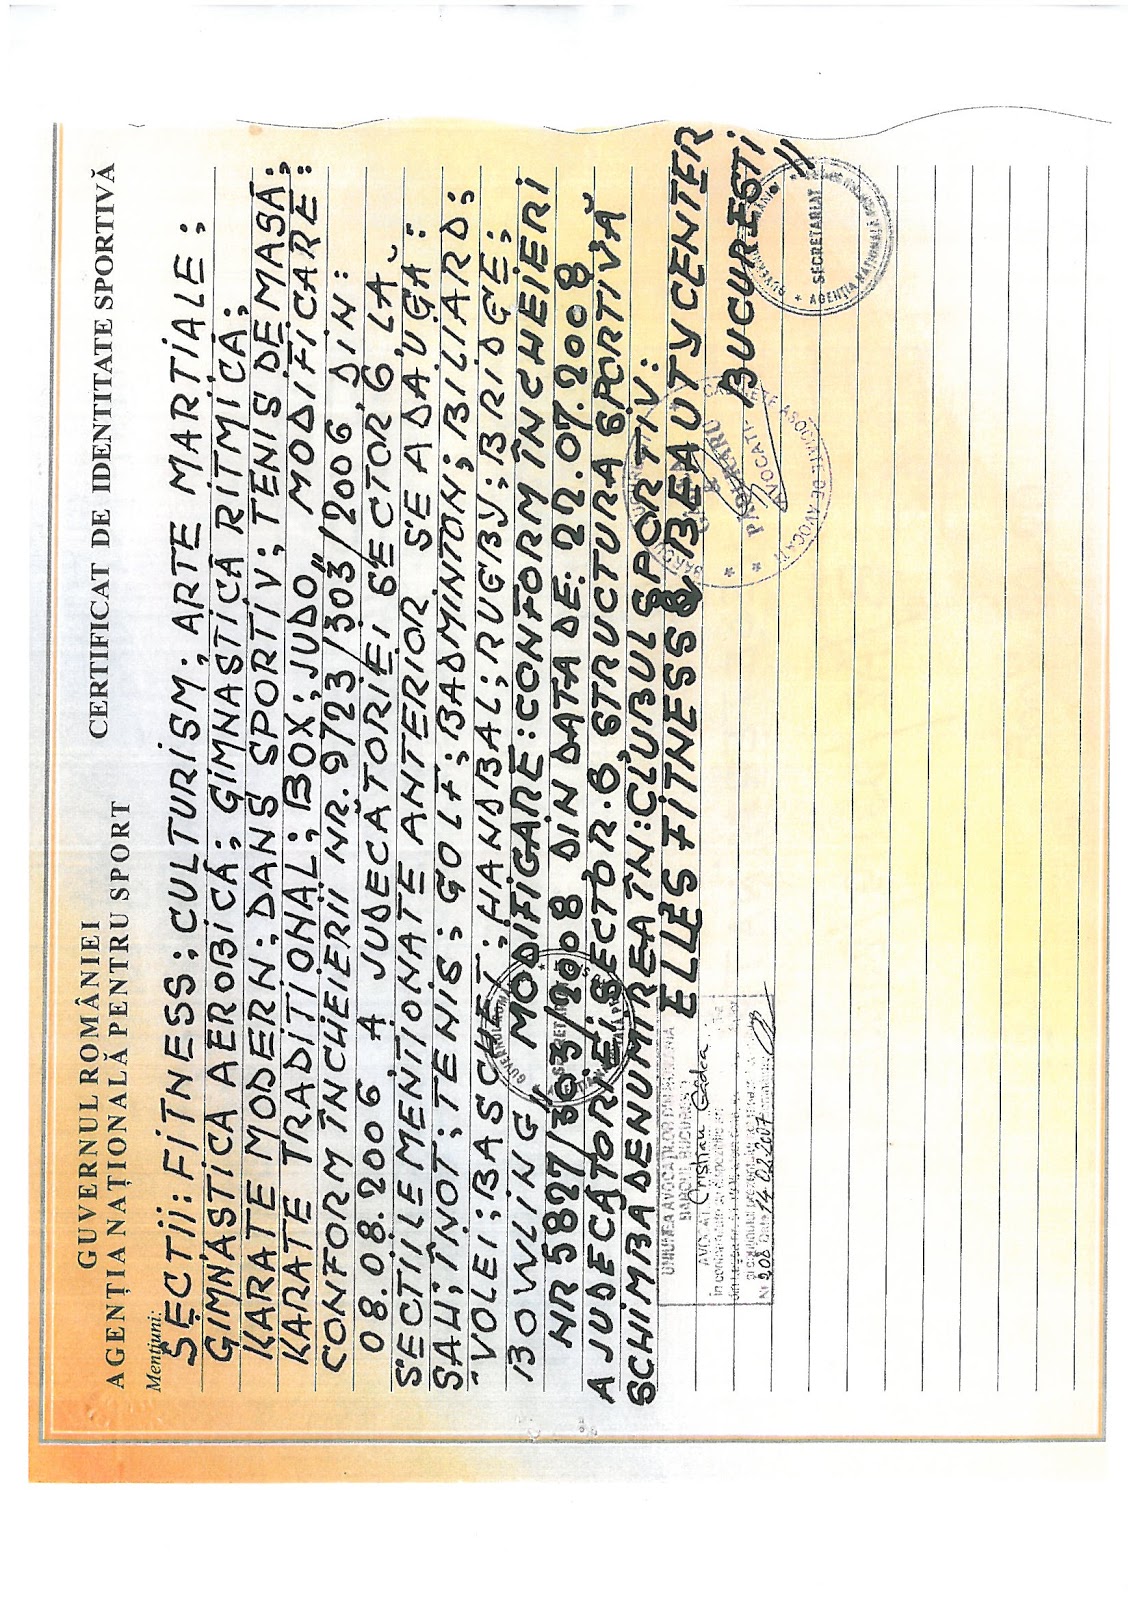 GUVERNUL ROMÂNIEI
AGENȚIA NAȚIONALĂ PENTRU SPORT
CERTIFICAT DE IDENTITATE SPORTIVĂ
Mențiuni:
SECTII: FITNESS; CULTURISM; ARTE MARTIALE;
GIMNASTICA AEROBICĂ; GIMNASTICĂ RITMICĂ;
KARATE MODERN; DANS SPORTIV; TENIS DE MASĂ;
KARATE TRADITIONAL; BOX; JUDO" MODIFICARE:
CONFORM ÎNCHEIERII NR. 9723/303/2006 DIN:
08.08.2006 A JUDECĂTORIEI SECTOR 6 LA
SECTIILE MENTIONATE ANTERIOR SE ADAUGA:
SAH; ÎNOT; TENIS; GOLF; BADMINTON; BILIARD;
VOLEI; BASCHET; HANDBAL; RUGBY; BRIDGE;
BOWLING" MODIFICARE: CONFORM ÎNCHEIERI
NR 5827/303/2008 DIN DATA DE: 22.07.2008
A JUDECĂTORIEI SECTOR.6, STRUCTURA SPORTIVĂ
SCHIMBA DENUMIREA ÎN: CLUBUL SPORTIV:
ELLES FITNESS & BEAUTY CENTER
BUCURESTI."
GUVERNUL ROMÂNIEI
SECRETARIAT
AGENȚIA NAȚIONALĂ
BAROUL BUCUREȘTI
&
AVOCAȚI
CABINETE ASOCIATE DE AVOCAȚI
GUVERNUL
SECRETARIAT
UNIUNEA AVOCAȚILOR DIN ROMÂNIA
BAROUL BUCUREȘTI
AVOCAT Cristian Gadea
Nr 208 14.02.2007